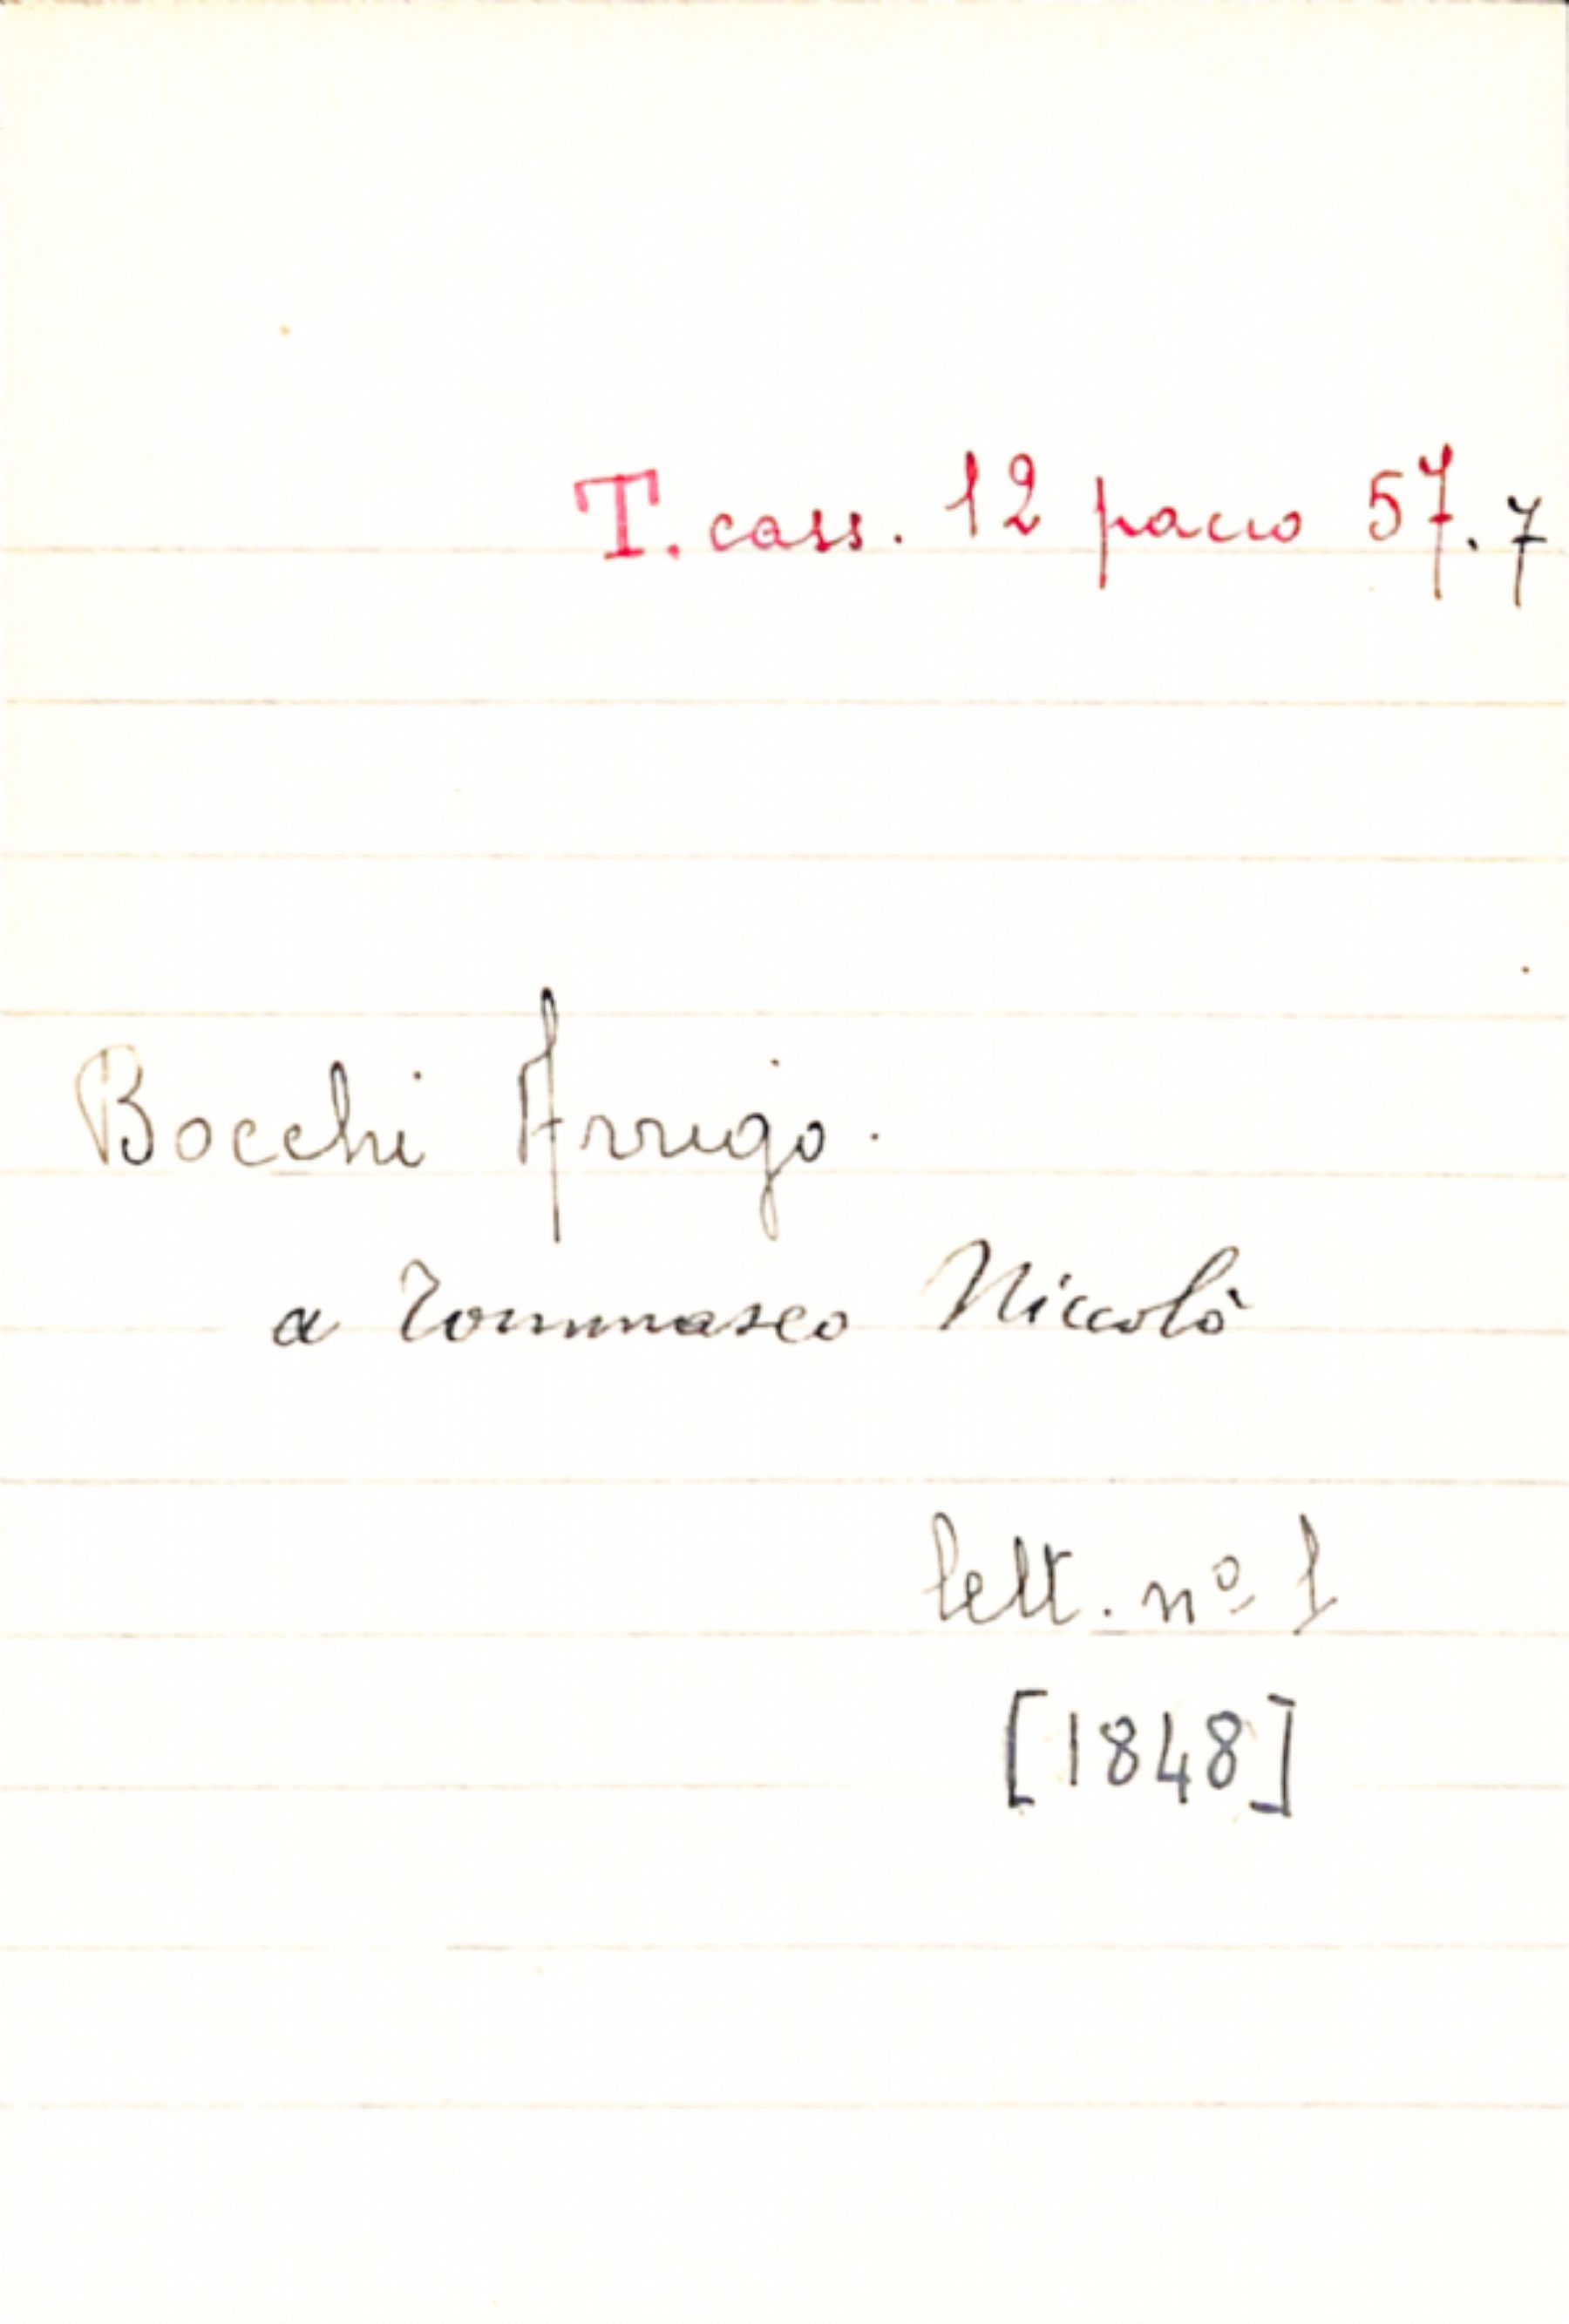 T. cass. 12 pacco 57.7
Bocchi Arrigo.
a Tommaseo Niccolò
lett. nº 1
[1848]